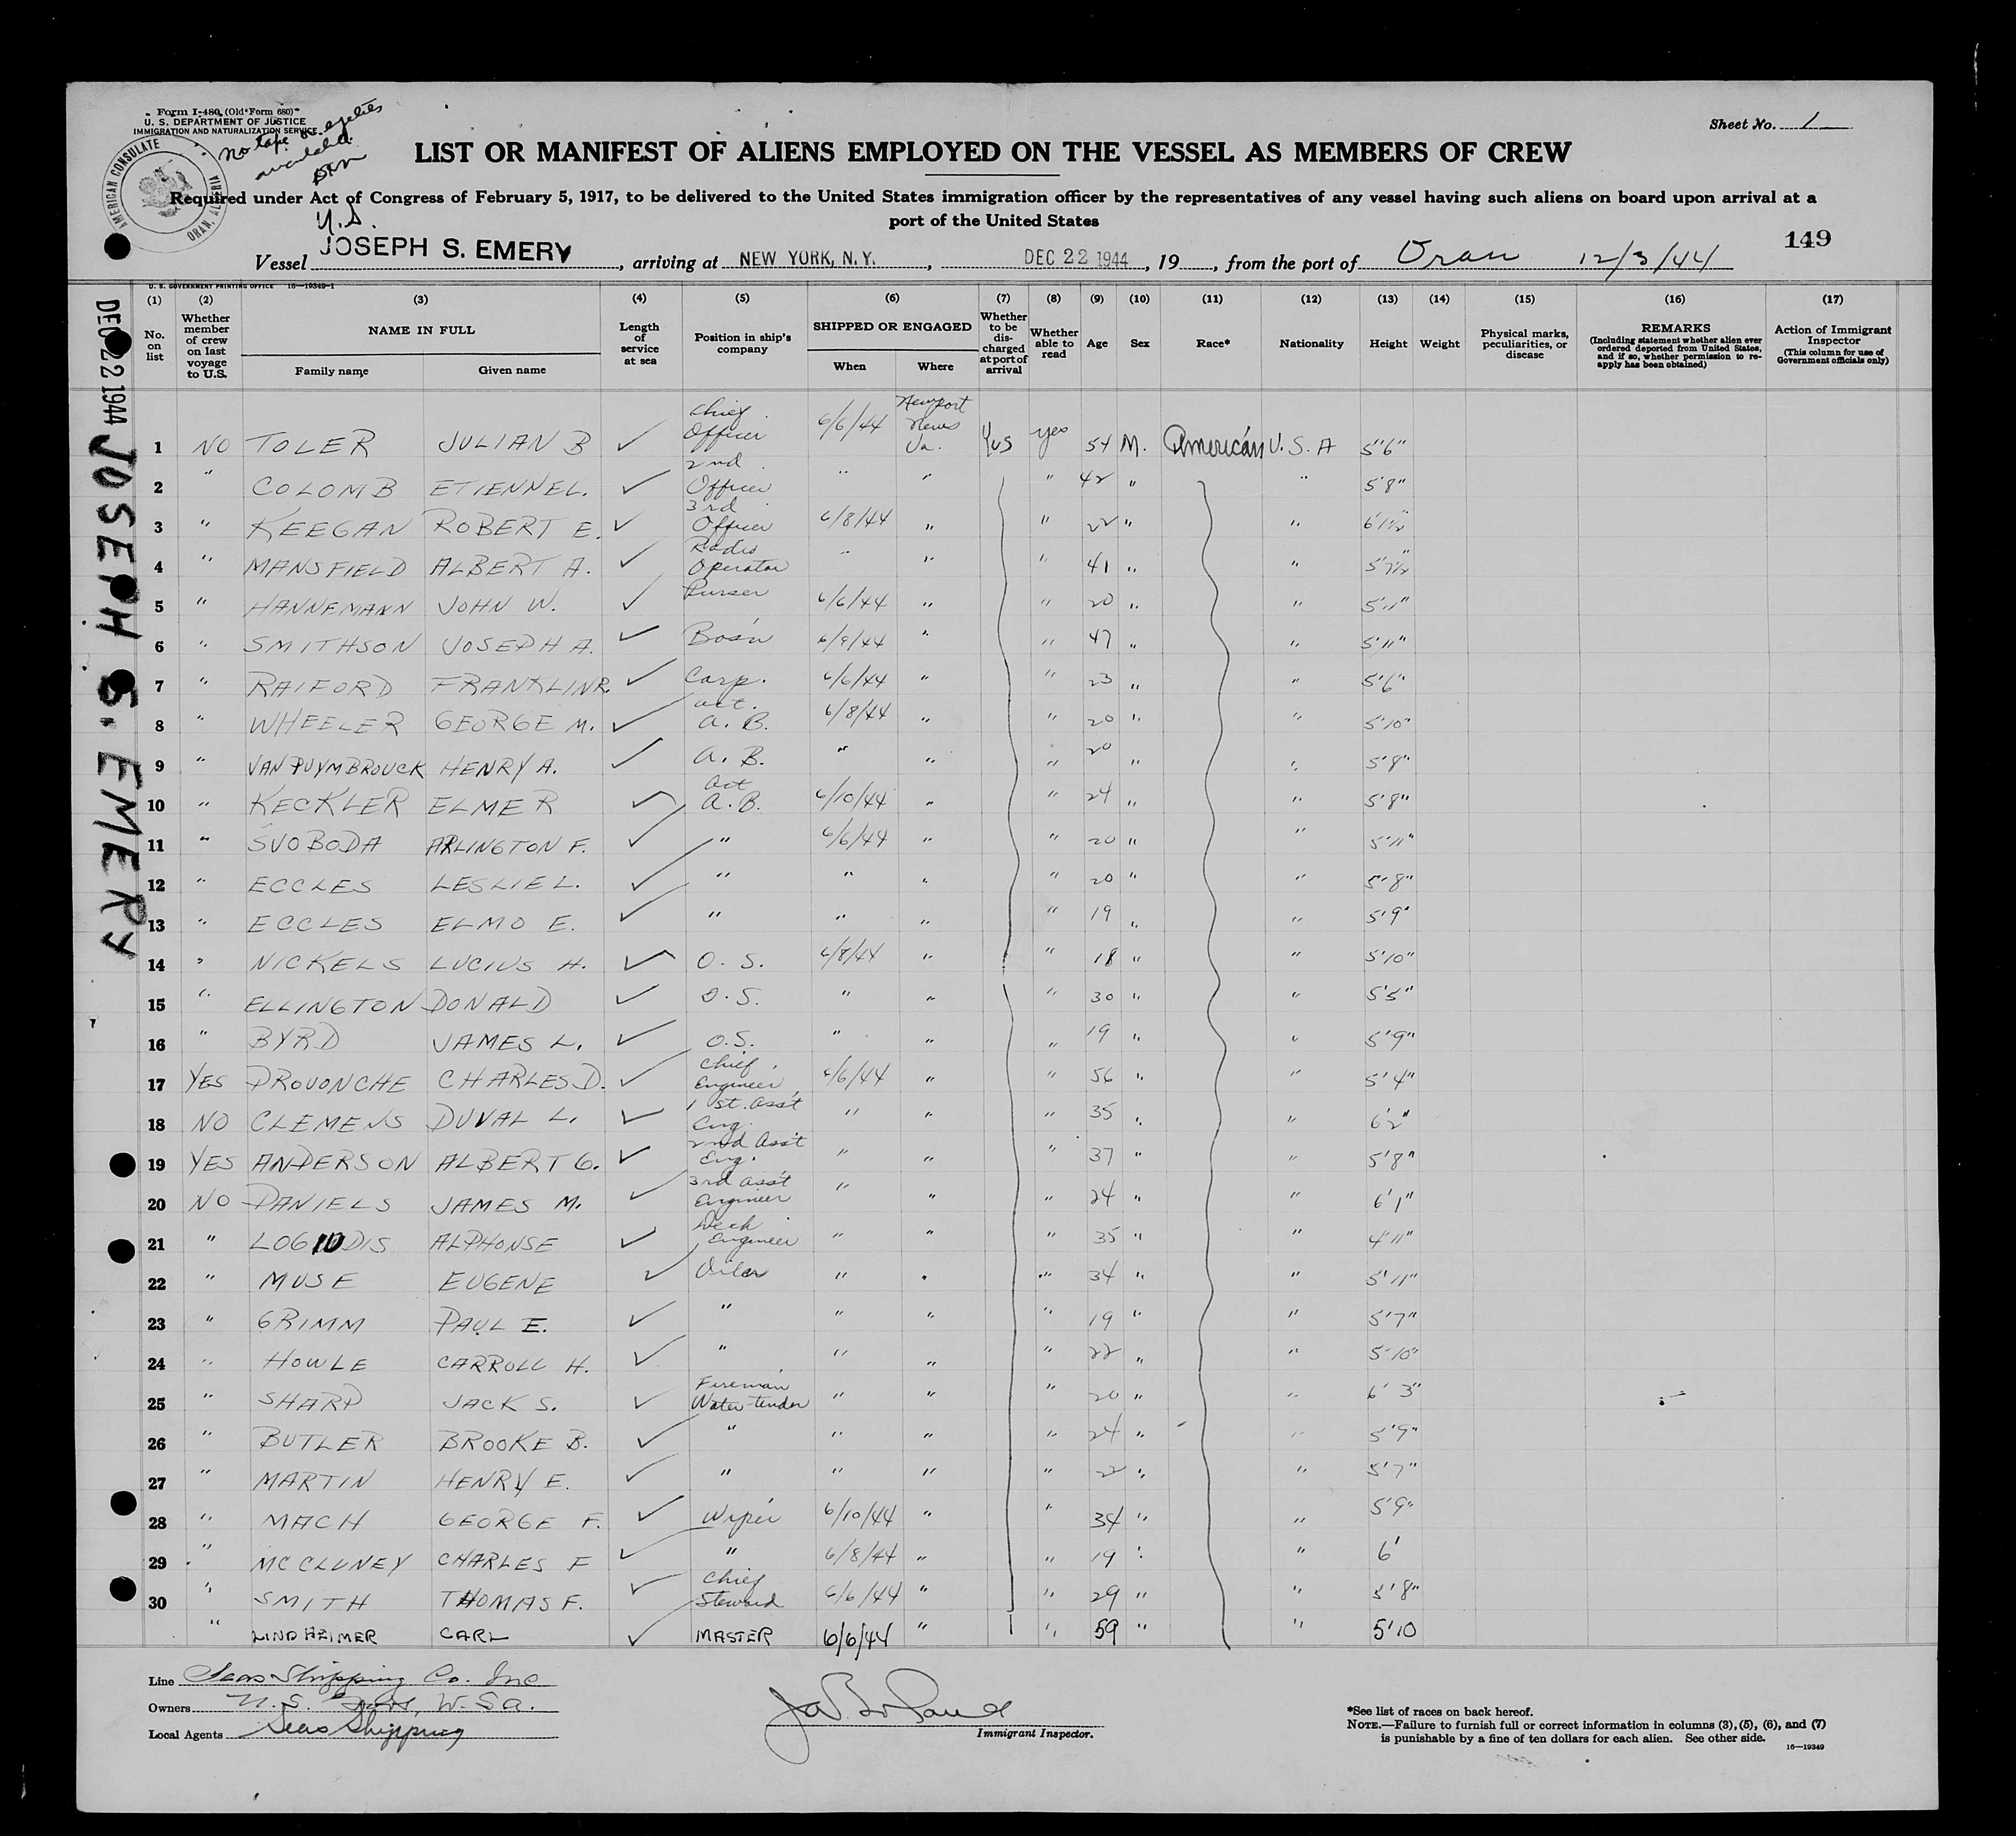 Form I-480 (Old Form 680)
U. S. DEPARTMENT OF JUSTICE
IMMIGRATION AND NATURALIZATION SERVICE
No tape
available
AMERICAN CONSULATE
ORAN, ALGERIA
Sheet No. 1
LIST OR MANIFEST OF ALIENS EMPLOYED ON THE VESSEL AS MEMBERS OF CREW
Required under Act of Congress of February 5, 1917, to be delivered to the United States immigration officer by the representatives of any vessel having such aliens on board upon arrival at a
port of the United States
149
U.S.
Vessel JOSEPH S. EMERY, arriving at NEW YORK, N.Y., DEC 22 1944, 19, from the port of Oran 12/3/44
U. S. GOVERNMENT PRINTING OFFICE 16-19349-1
DEC 22 1944 JOSEPH S. EMERY
(1) (2) (3) (4) (5) (6) (7) (8) (9) (10) (11) (12) (13) (14) (15) (16) (17)
No. on list
Whether member of crew on last voyage to U.S.
NAME IN FULL
Family name Given name
Length of service at sea
Position in ship's company
SHIPPED OR ENGAGED
When Where
Whether to be discharged at port of arrival
Whether able to read
Age Sex Race* Nationality Height Weight
Physical marks, peculiarities, or disease
REMARKS
(Including statement whether alien ever ordered deported from United States, and if so, whether permission to re-apply has been obtained)
Action of Immigrant Inspector
(This column for use of Government officials only)
1 NO TOLER JULIAN B ✓ Chief Officer 6/6/44 Newport News Va. Yes yes 54 M. American U.S.A 5'6"
2 " COLOMB ETIENNE L. ✓ 2nd Officer " " " 42 " " 5'8"
3 " KEEGAN ROBERT E. ✓ 3rd Officer 6/8/44 " " 22 " " 6'1½"
4 " MANSFIELD ALBERT A. ✓ Radio Operator " " " 41 " " 5'7½"
5 " HANNEMANN JOHN W. ✓ Purser 6/6/44 " " 20 " " 5'11"
6 " SMITHSON JOSEPH A. ✓ Bos'n 6/9/44 " " 47 " " 5'11"
7 " RAIFORD FRANKLIN R. ✓ Carp. 6/6/44 " " 23 " " 5'6"
8 " WHEELER GEORGE M. ✓ act. A.B. 6/8/44 " " 20 " " 5'10"
9 " VAN PUYMBROUCK HENRY A. ✓ A.B. " " " 20 " " 5'8"
10 " KECKLER ELMER ✓ act A.B. 6/10/44 " " 24 " " 5'8"
11 " SVOBODA ARLINGTON F. ✓ " 6/6/44 " " 20 " " 5'11"
12 " ECCLES LESLIE L. ✓ " " " " 20 " " 5'8"
13 " ECCLES ELMO E. ✓ " " " " 19 " " 5'9"
14 " NICKELS LUCIUS H. ✓ O.S. 6/8/44 " " 18 " " 5'10"
15 " ELLINGTON DONALD ✓ O.S. " " " 30 " " 5'5"
16 " BYRD JAMES L. ✓ O.S. " " " 19 " " 5'9"
17 YES PROVONCHE CHARLES D. ✓ Chief Engineer 6/6/44 " " 56 " " 5'4"
18 NO CLEMENS DUVAL L. ✓ 1st. Ass't Eng. " " " 35 " " 6'2"
19 YES ANDERSON ALBERT G. ✓ 2nd Ass't Eng. " " " 37 " " 5'8"
20 NO DANIELS JAMES M. ✓ 3rd Ass't Engineer " " " 24 " " 6'1"
21 " LOGIODIS ALPHONSE ✓ Deck Engineer " " " 35 " " 4'11"
22 " MUSE EUGENE ✓ Oiler " " " 34 " " 5'11"
23 " GRIMM PAUL E. ✓ " " " " 19 " " 5'7"
24 " HOWLE CARROLL H. ✓ " " " " 22 " " 5'10"
25 " SHARP JACK S. ✓ Fireman Water-tender " " " 20 " " 6'3"
26 " BUTLER BROOKE B. ✓ " " " " 24 " " 5'9"
27 " MARTIN HENRY E. ✓ " " " " 22 " " 5'7"
28 " MACH GEORGE F. ✓ Wiper 6/10/44 " " 34 " " 5'9"
29 " MCCLUNEY CHARLES F ✓ " 6/8/44 " " 19 " " 6'
30 " SMITH THOMAS F. ✓ Chief Steward 6/6/44 " " 29 " " 5'8"
" LINDHEIMER CARL ✓ MASTER 6/6/44 " " 59 " " 5'10
Line Seas Shipping Co. Inc
Owners U.S. W.S.A.
Local Agents Seas Shipping
Immigrant Inspector.
*See list of races on back hereof.
NOTE.—Failure to furnish full or correct information in columns (3), (5), (6), and (7)
is punishable by a fine of ten dollars for each alien. See other side.
16-19349